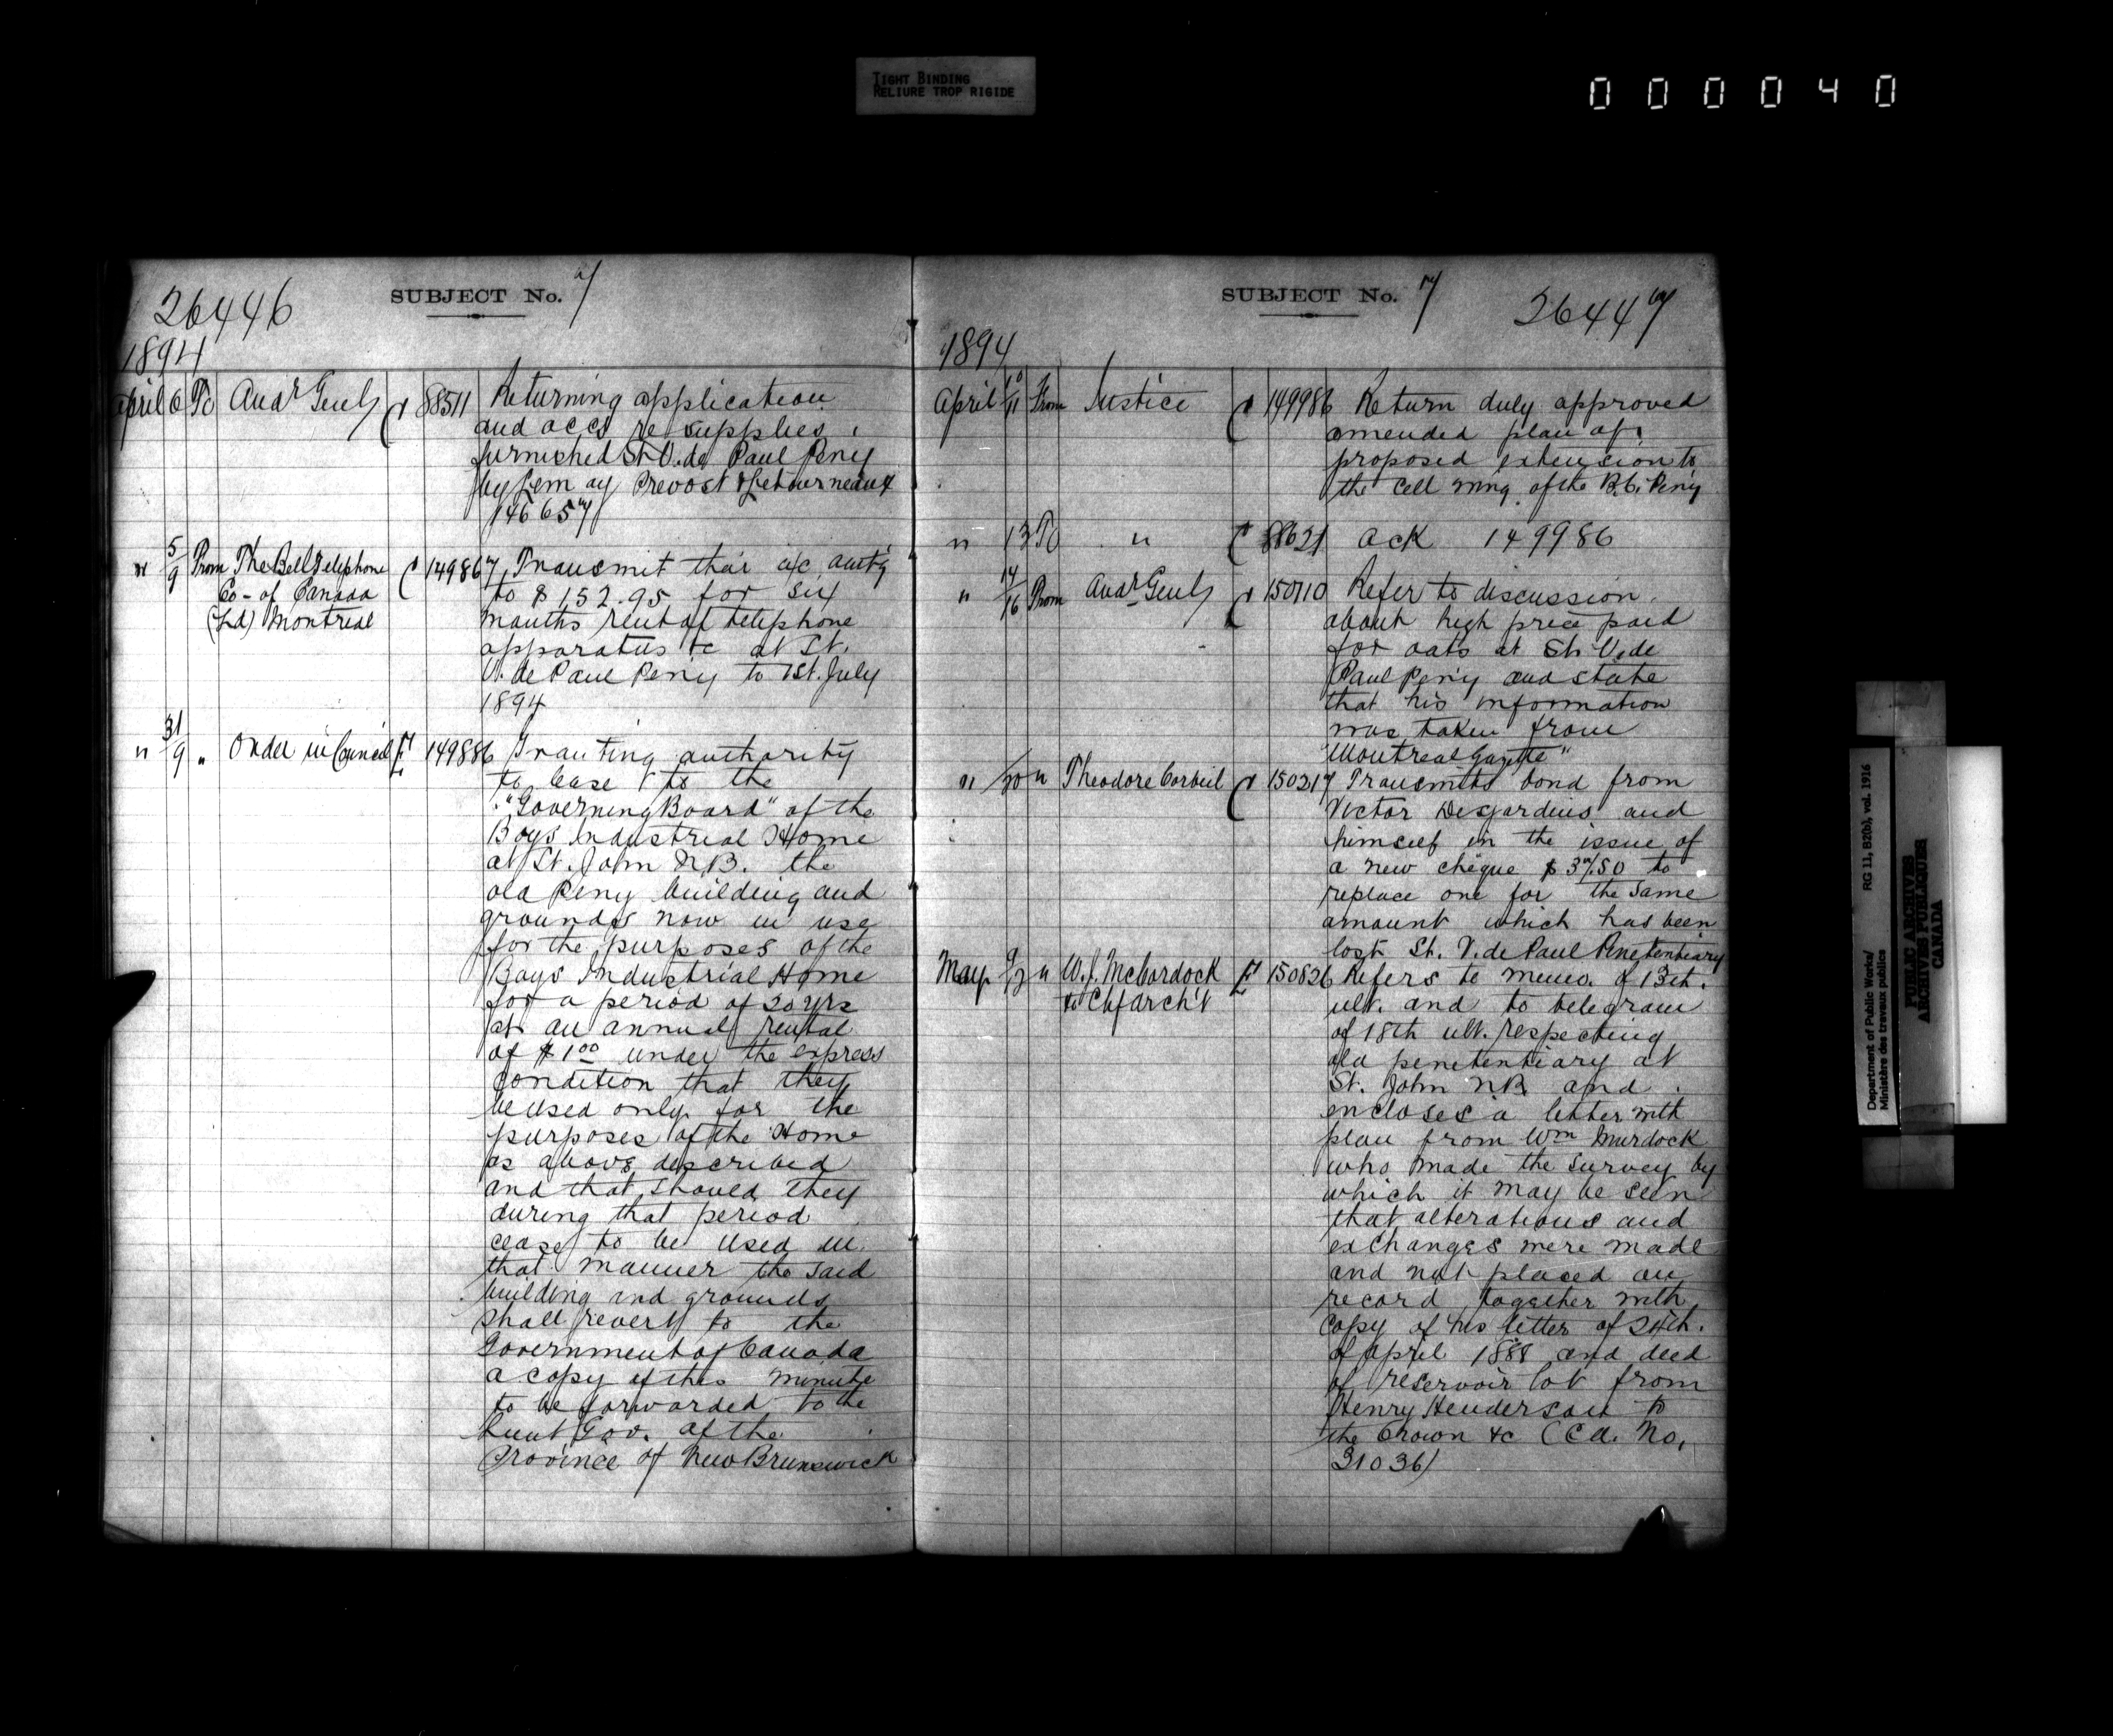 TIGHT BINDING
RELIURE TROP RIGIDE
000040
26446
SUBJECT No. 7
1894
April 6 To Audr Genl 88511 Returning application
and accs re supplies
furnished St. V. de Paul Peny
by Prevost & Letourneaux
146657
" 5/9 From The Bell Telephone 149867 Transmit their a/c amtg
Co- of Canada to $152.95 for six
(Ld) Montreal months rent of telephone
apparatus &c at St.
V. de Paul Peny to 1st. July
1894
" 31/9 " Order in Council 149886 Granting authority
to lease to the
"Governing Board" of the
Boys Industrial Home
at St. John N.B. the
old Peny building and
grounds now in use
for the purposes of the
Boys Industrial Home
for a period of 20 yrs
at an annual rental
of $1.00 under the express
condition that they
be used only for the
purposes of the Home
as above described
and that should they
during that period
cease to be used in
that manner the said
building and grounds
shall revert to the
Government of Canada
a copy of this minute
to be forwarded to the
Lieut Gov. of the
Province of New Brunswick
SUBJECT No. 7
26447
1894
April 10/11 From Justice 149986 Return duly approved
amended plan of
proposed extension to
the cell wing of the B.C. Peny
" 13 To " 88621 Ack 149986
" 14/16 From Audr Genl 150110 Refer to discussion
about high price paid
for oats at St. V. de
Paul Peny and state
that his information
was taken from
"Montreal Gazette"
" /20 " Theodore Corbeil 150217 Transmits bond from
Victor Desjardins and
himself in the issue of
a new cheque $37.50 to
replace one for the same
amount which has been
lost St. V. de Paul Penetentiary
May " W. J. McCordock 150826 Refers to memo. of 13th.
to Chf Arch't ult. and to telegram
of 18th ult. respecting
old penetentiary at
St. John N.B. and
encloses a letter with
plan from Wm Murdock
who made the survey by
which it may be seen
that alterations and
exchanges were made
and not placed on
record together with
copy of his letter of 24th.
of April 1888 and deed
of reservoir lot from
Henry Henderson to
the Crown &c (Cd. No.
31036)
Department of Public Works/ RG 11, B2(b), vol. 1916
Ministère des travaux publics
PUBLIC ARCHIVES
ARCHIVES PUBLIQUES
CANADA